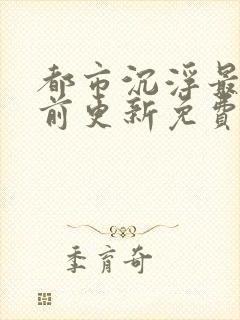 都市沉浮最
前更新免费
季育奇